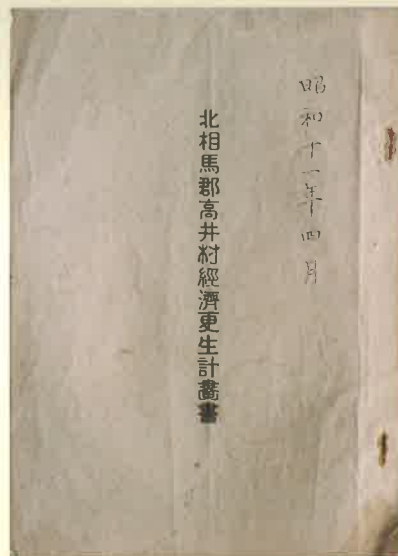 昭和十一年四月
北相馬郡高井村經濟更生計畫書